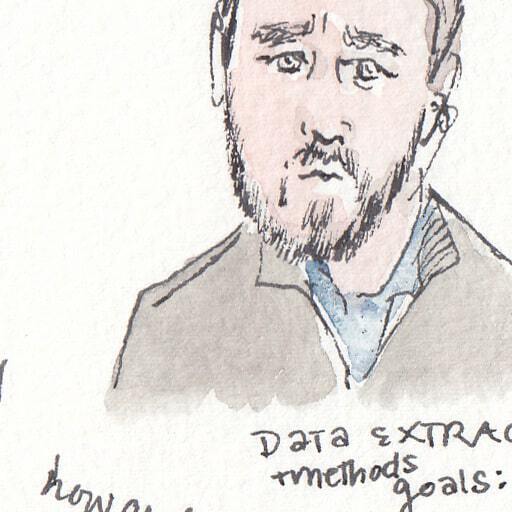 DATA EXTRAC
+methods
goals:
how